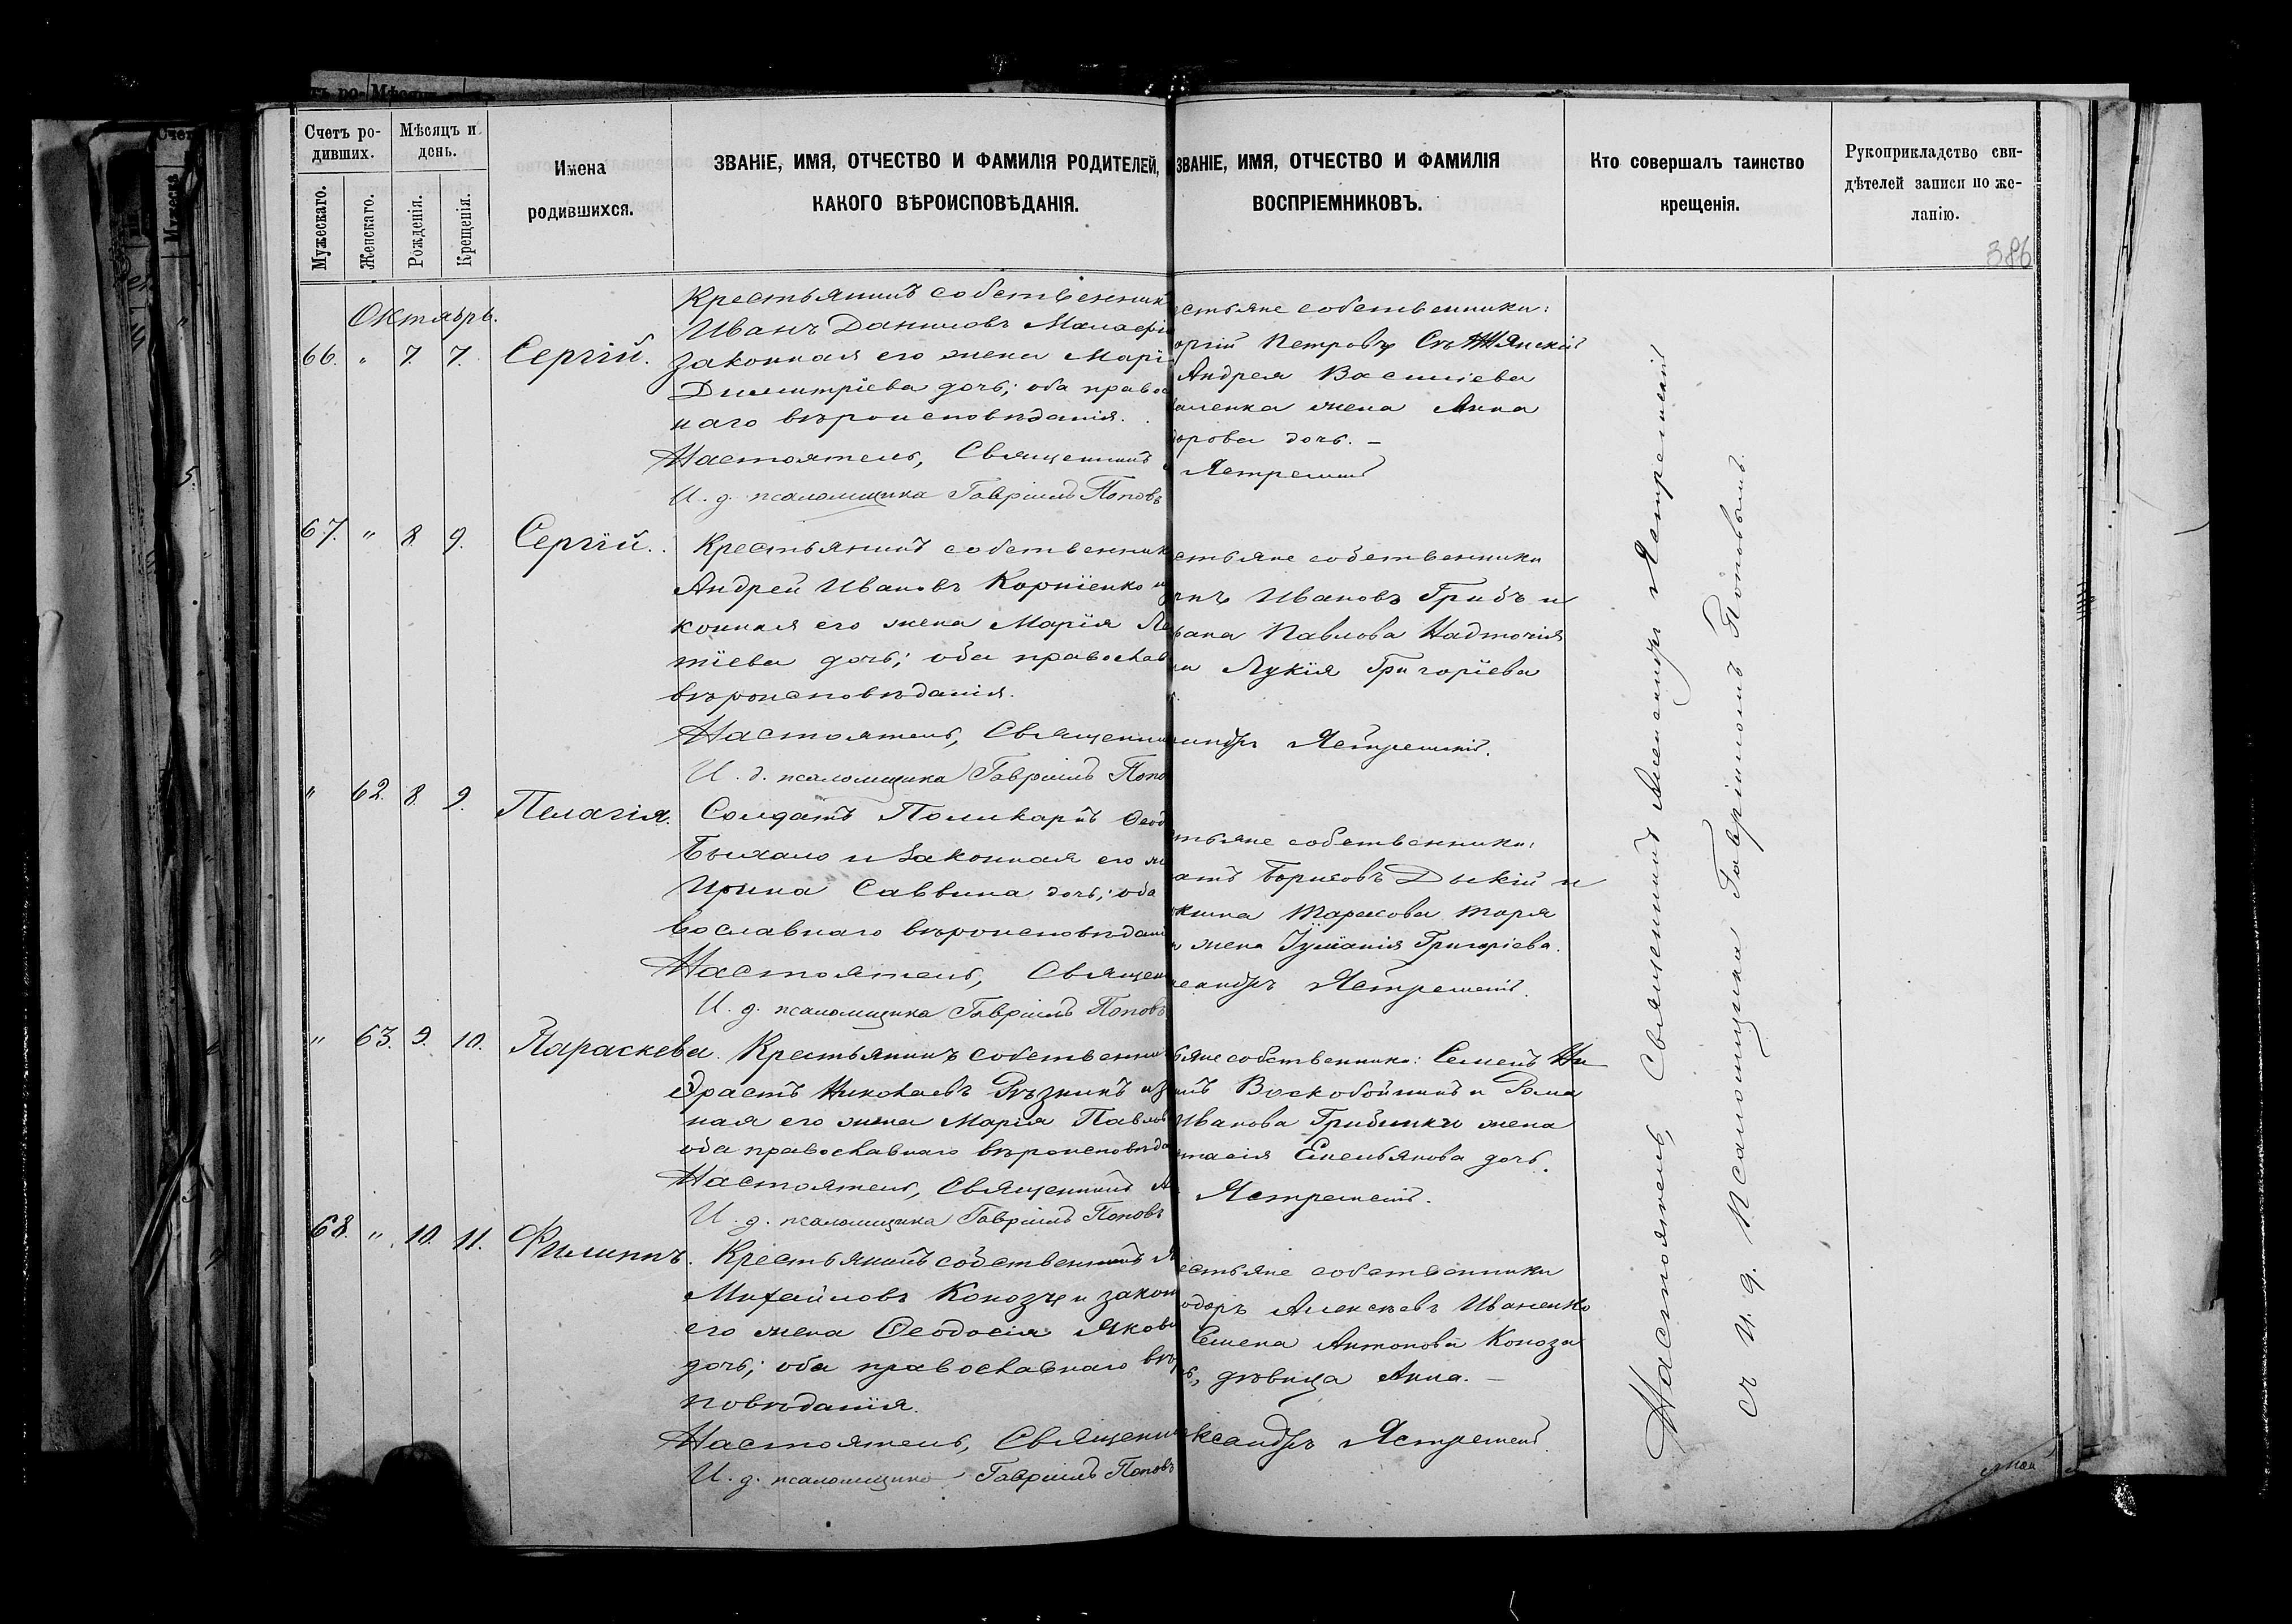 Счетъ ро-
дившихъ.
Мѣсяцъ и
день.
Мужескаго.
Женскаго.
Рожденія.
Крещенія.
Имена
родившихся.
ЗВАНІЕ, ИМЯ, ОТЧЕСТВО И ФАМИЛІЯ РОДИТЕЛЕЙ,
КАКОГО ВѢРОИСПОВѢДАНІЯ.
ЗВАНІЕ, ИМЯ, ОТЧЕСТВО И ФАМИЛІЯ
ВОСПРІЕМНИКОВЪ.
Кто совершалъ таинство
крещенія.
Рукоприкладство сви-
дѣтелей записи по же-
ланію.
386
Октябрь.
66. " 7. 7. Сергій.
Крестьянинъ собственник
Иванъ Даниловъ
законная его жена Марі
Димитріева дочь; оба правос
наго вѣроисповѣданія.
Настоятель, Священникъ
И. д. псаломщика Гавріилъ Поповъ
стьяне собственники:
оргій Петровъ
Андрея Василіева
жена Анна
дорова дочь. –
Ястремскій
67. " 8. 9. Сергій.
Крестьянинъ собственник
Андрей Ивановъ Корніенко и
конная его жена Марія Ле
тіева дочь; оба православ
вѣроисповѣданія.
Настоятель, Священни
И. д. псаломщика Гавріилъ Попо
стьяне собственники
Ивановъ Грибъ и
вана Павлова Надточія
на Лукія Григоріева
андръ Ястремскій.
" 62. 8. 9. Пелагія.
Солдатъ Поликарпъ Ѳеод
и законная его ж
Ирина Саввина дочь; оба
вославнаго вѣроисповѣдані
Настоятель, Священ
И. д. псаломщика Гавріилъ Поповъ
тьяне собственники:
атъ Борисовъ Дыкій и
Тарасова
жена Григоріева.
ександръ Ястремскій.
" 63. 9. 10. Параскева.
Крестьянинъ собственни
Эрастъ Николаевъ Рѣзникъ и з
ная его жена Марія Павлов
оба православнаго вѣроисповѣда
Настоятель, Священникъ Ал
И. д. псаломщика Гавріилъ Поповъ
ьяне собственники: Семенъ Ни
Воскобойникъ и Рома
Иванова жена
стасія Емельянова дочь.
Ястремскій.
68. " 10. 11. Филиппъ.
Крестьянинъ собственникъ
Михайловъ Коноза и закон
его жена Ѳеодосія Яковл
дочь; оба православнаго вѣр
повѣданія.
Настоятель, Священни
И. д. псаломщика Гавріилъ Поповъ
естьяне собственники
одоръ Алексѣевъ Иваненко
Семена Антонова Коноза
ь, дѣвица Анна. –
ександръ Ястремскій.
Настоятель, Священникъ Александръ Ястремскій
съ и. д. псаломщика Гавріиломъ Поповымъ.